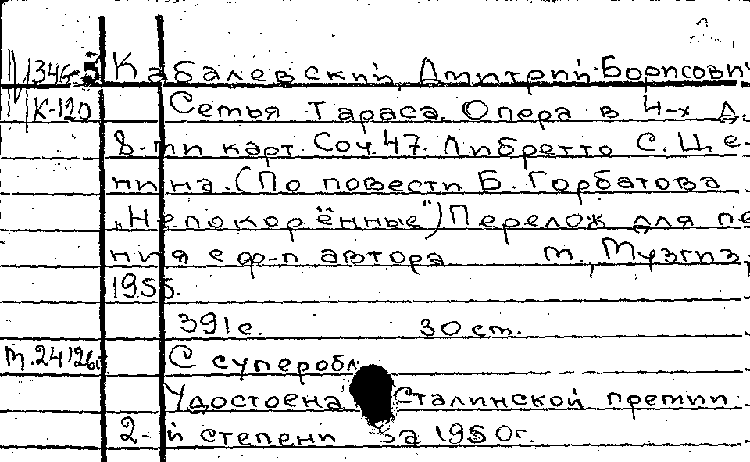 Кабалевский, Дмитрий Борисович
К-120 Семья Тараса. Опера в 4-х д.
8-ми карт. Соч. 47. Либретто С. Це-
нина. (По повести Б. Горбатова
„Непокорённые") Перелож для пе
ния с ф-п автора м., Музгиз,
1955.
391с. 30 см.
С суперобл.
Удостоена Сталинской премии
2-й степени за 1950г.